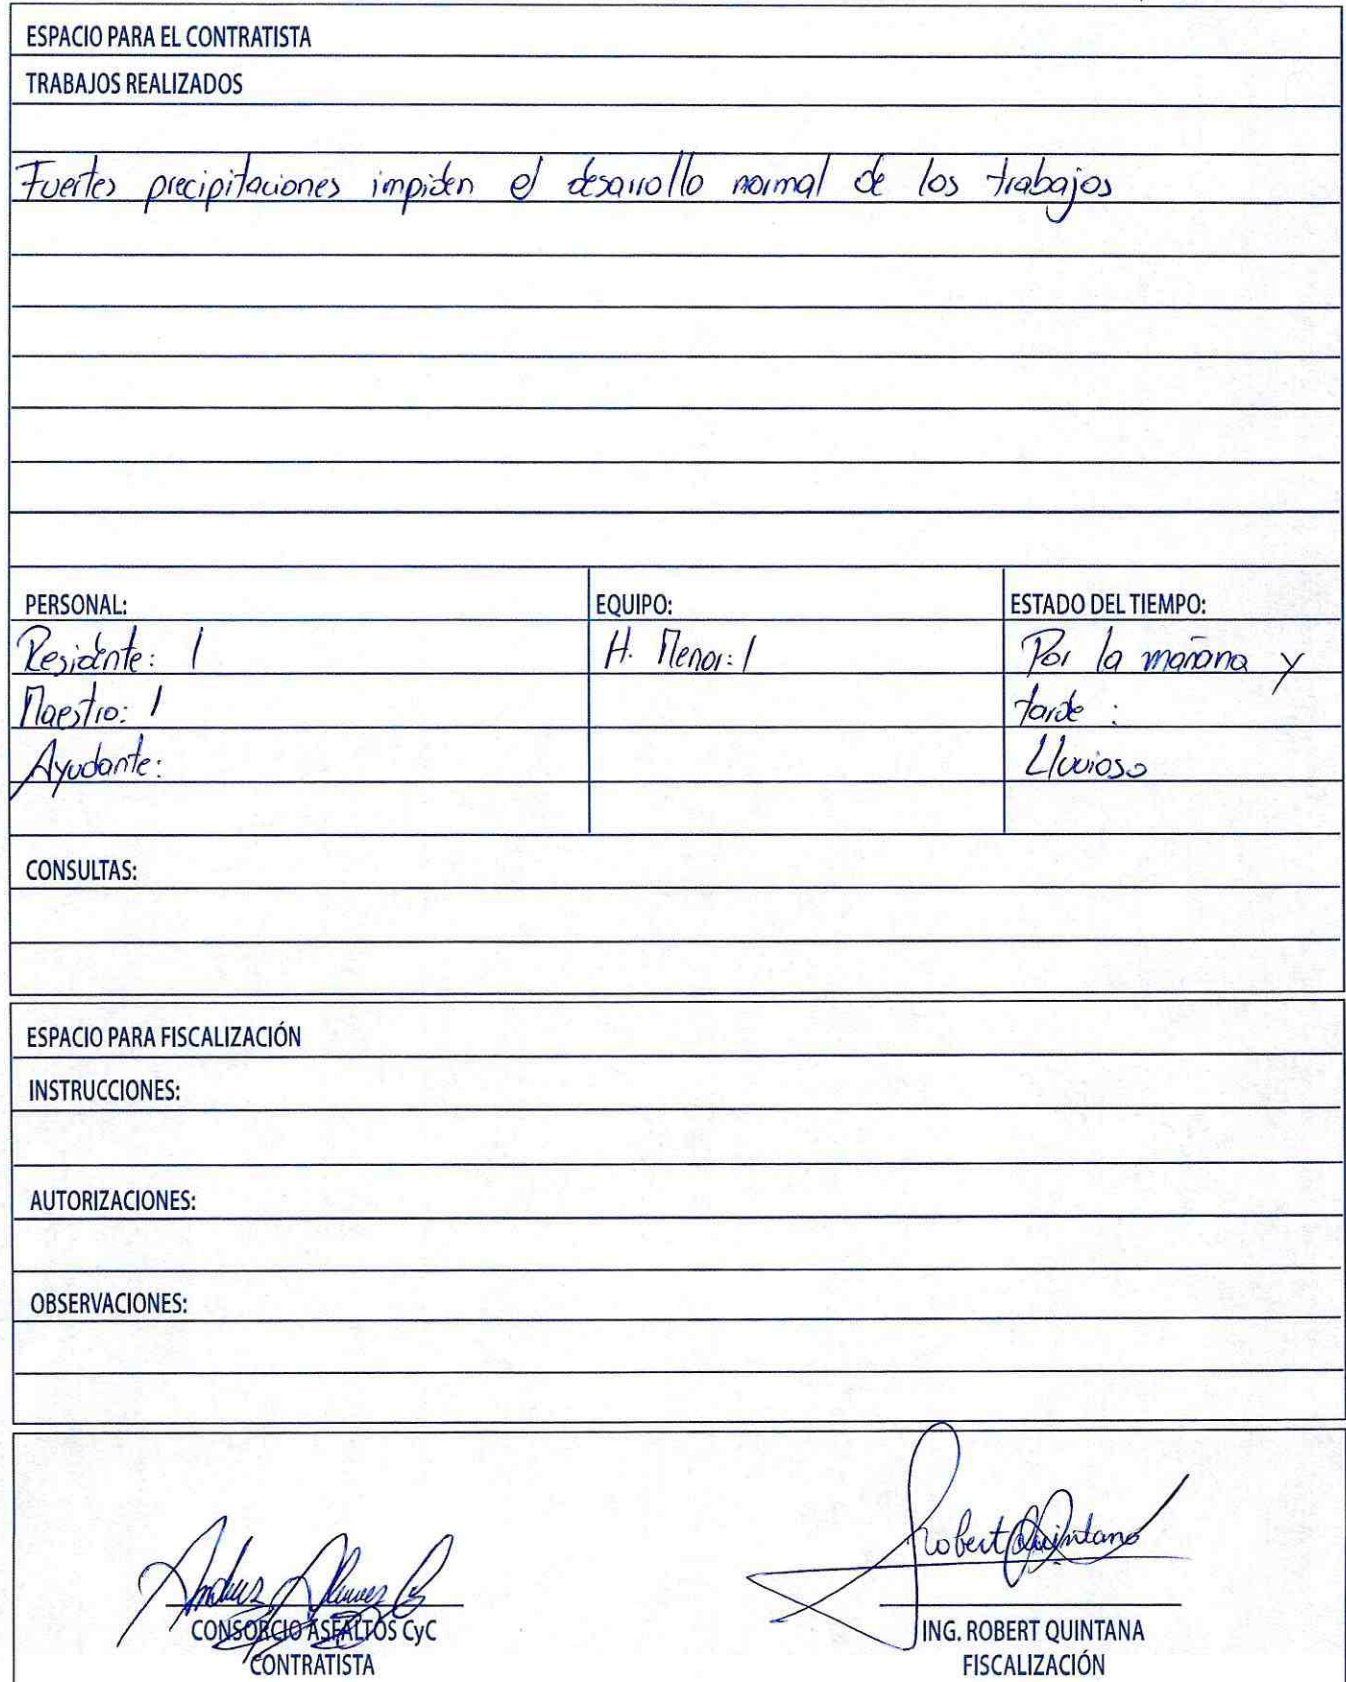 ESPACIO PARA EL CONTRATISTA
TRABAJOS REALIZADOS
Fuertes precipitaciones impiden el desarrollo normal de los trabajos
PERSONAL:
Residente: 1
Maestro: 1
Ayudante:
EQUIPO:
H. Menor: 1
ESTADO DEL TIEMPO:
Por la mañana y
tarde :
Lluvioso
CONSULTAS:
ESPACIO PARA FISCALIZACIÓN
INSTRUCCIONES:
AUTORIZACIONES:
OBSERVACIONES:
CONSORCIO ASFALTOS CyC
CONTRATISTA
Robert Quintana
ING. ROBERT QUINTANA
FISCALIZACIÓN